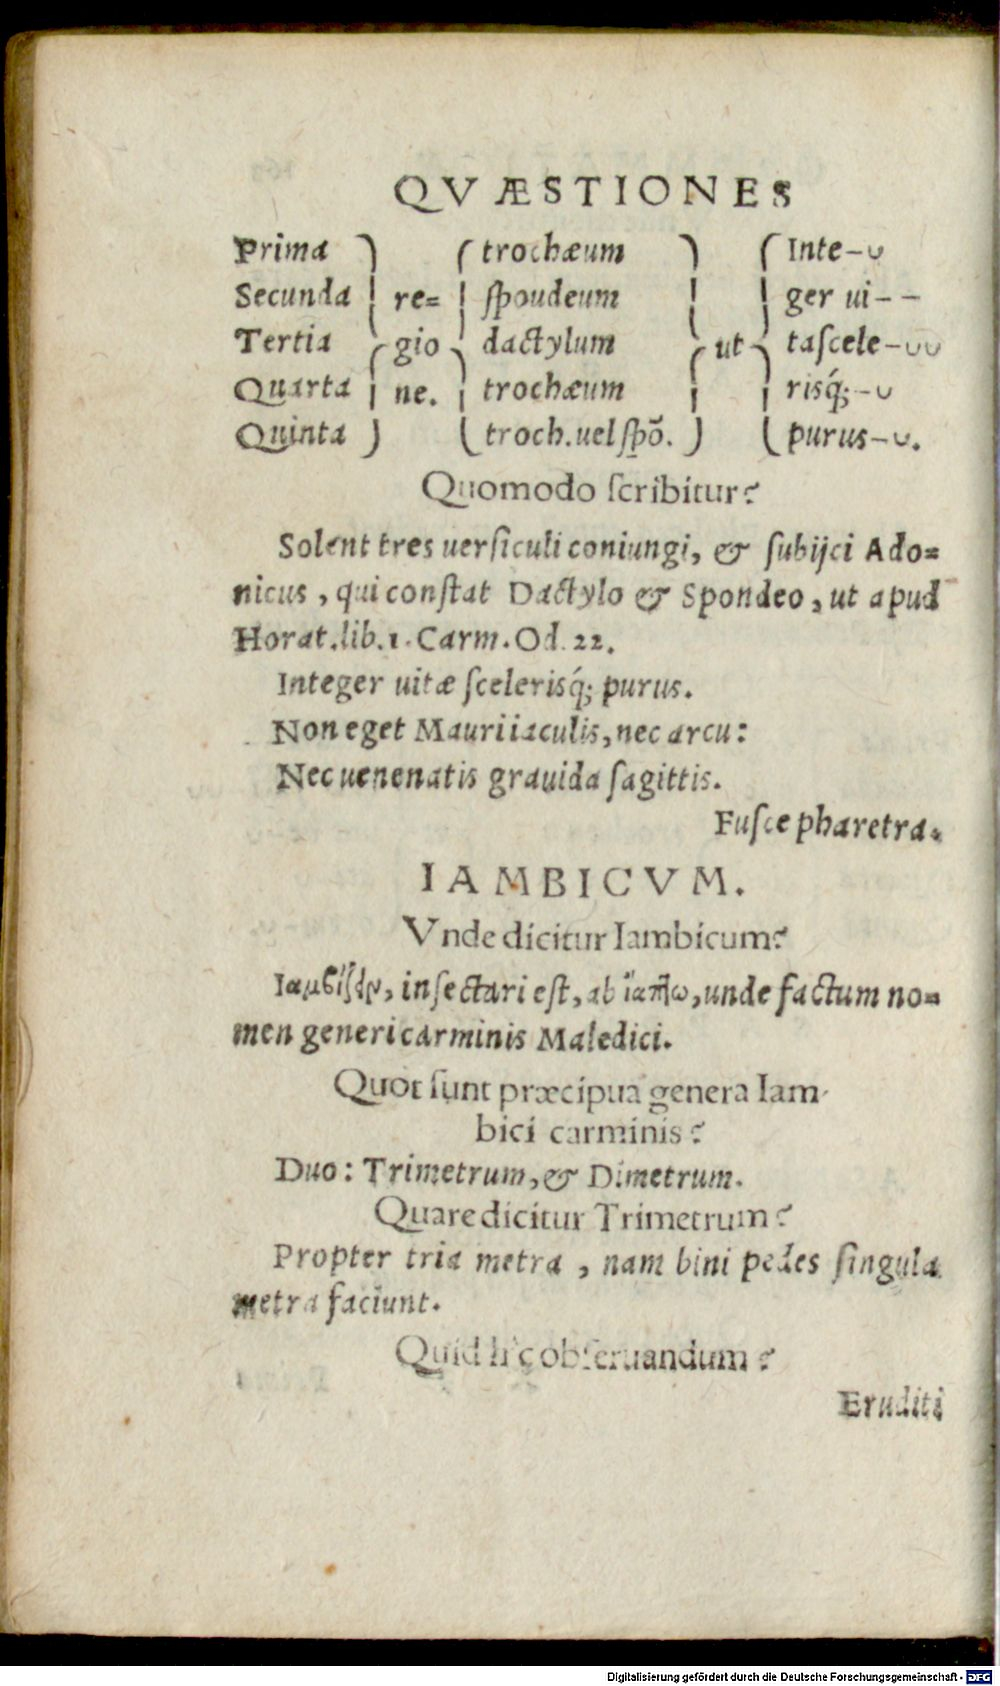 QVÆSTIONES
Prima trochæum Inte–∪
Secunda re= spoudeum ger ui– –
Tertia gio dactylum ut taſcele–∪∪
Quarta ne. trochæum risq́;–∪
Quinta troch.uel ſpō. purus–∪.
Quomodo ſcribitur?
Solent tres uerſiculi coniungi, & ſubijci Ado=
nicus, qui conſtat Dactylo & Spondeo, ut apud
Horat.lib.1.Carm.Od.22.
Integer uitæ ſcelerisq́; purus.
Non eget Mauri iaculis, nec arcu:
Nec uenenatis grauida ſagittis.
Fuſce pharetra.
IAMBICVM.
Vnde dicitur Iambicum?
Ιαμβίζειν, inſectari eſt, ab ἰάπτω, unde factum no=
men generi carminis Maledici.
Quot ſunt præcipua genera Iam-
bici carminis?
Duo: Trimetrum, & Dimetrum.
Quare dicitur Trimetrum?
Propter tria metra, nam bini pedes ſingula
metra faciunt.
Quid hîc obſeruandum?
Eruditi
Digitalisierung gefördert durch die Deutsche Forschungsgemeinschaft - DFG